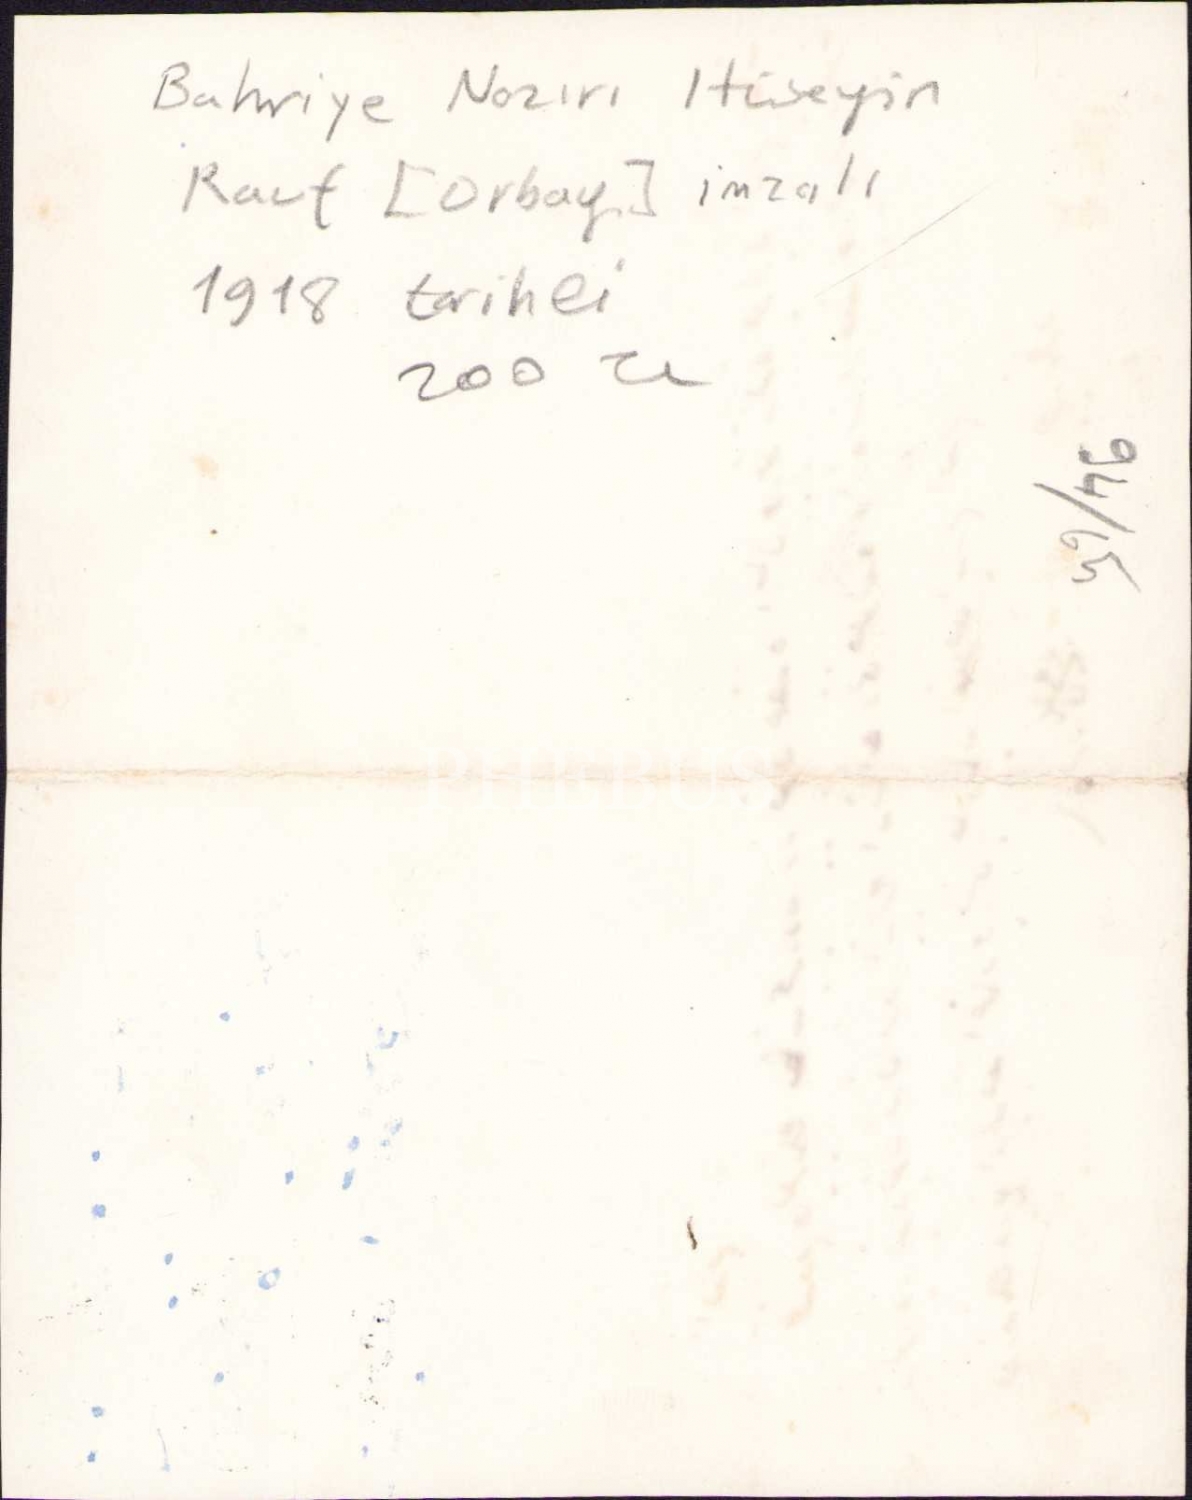 Bahriye Nazırı Hüseyin
Rauf [Orbay] imzalı
1918 tarihli
200 TL
59/46